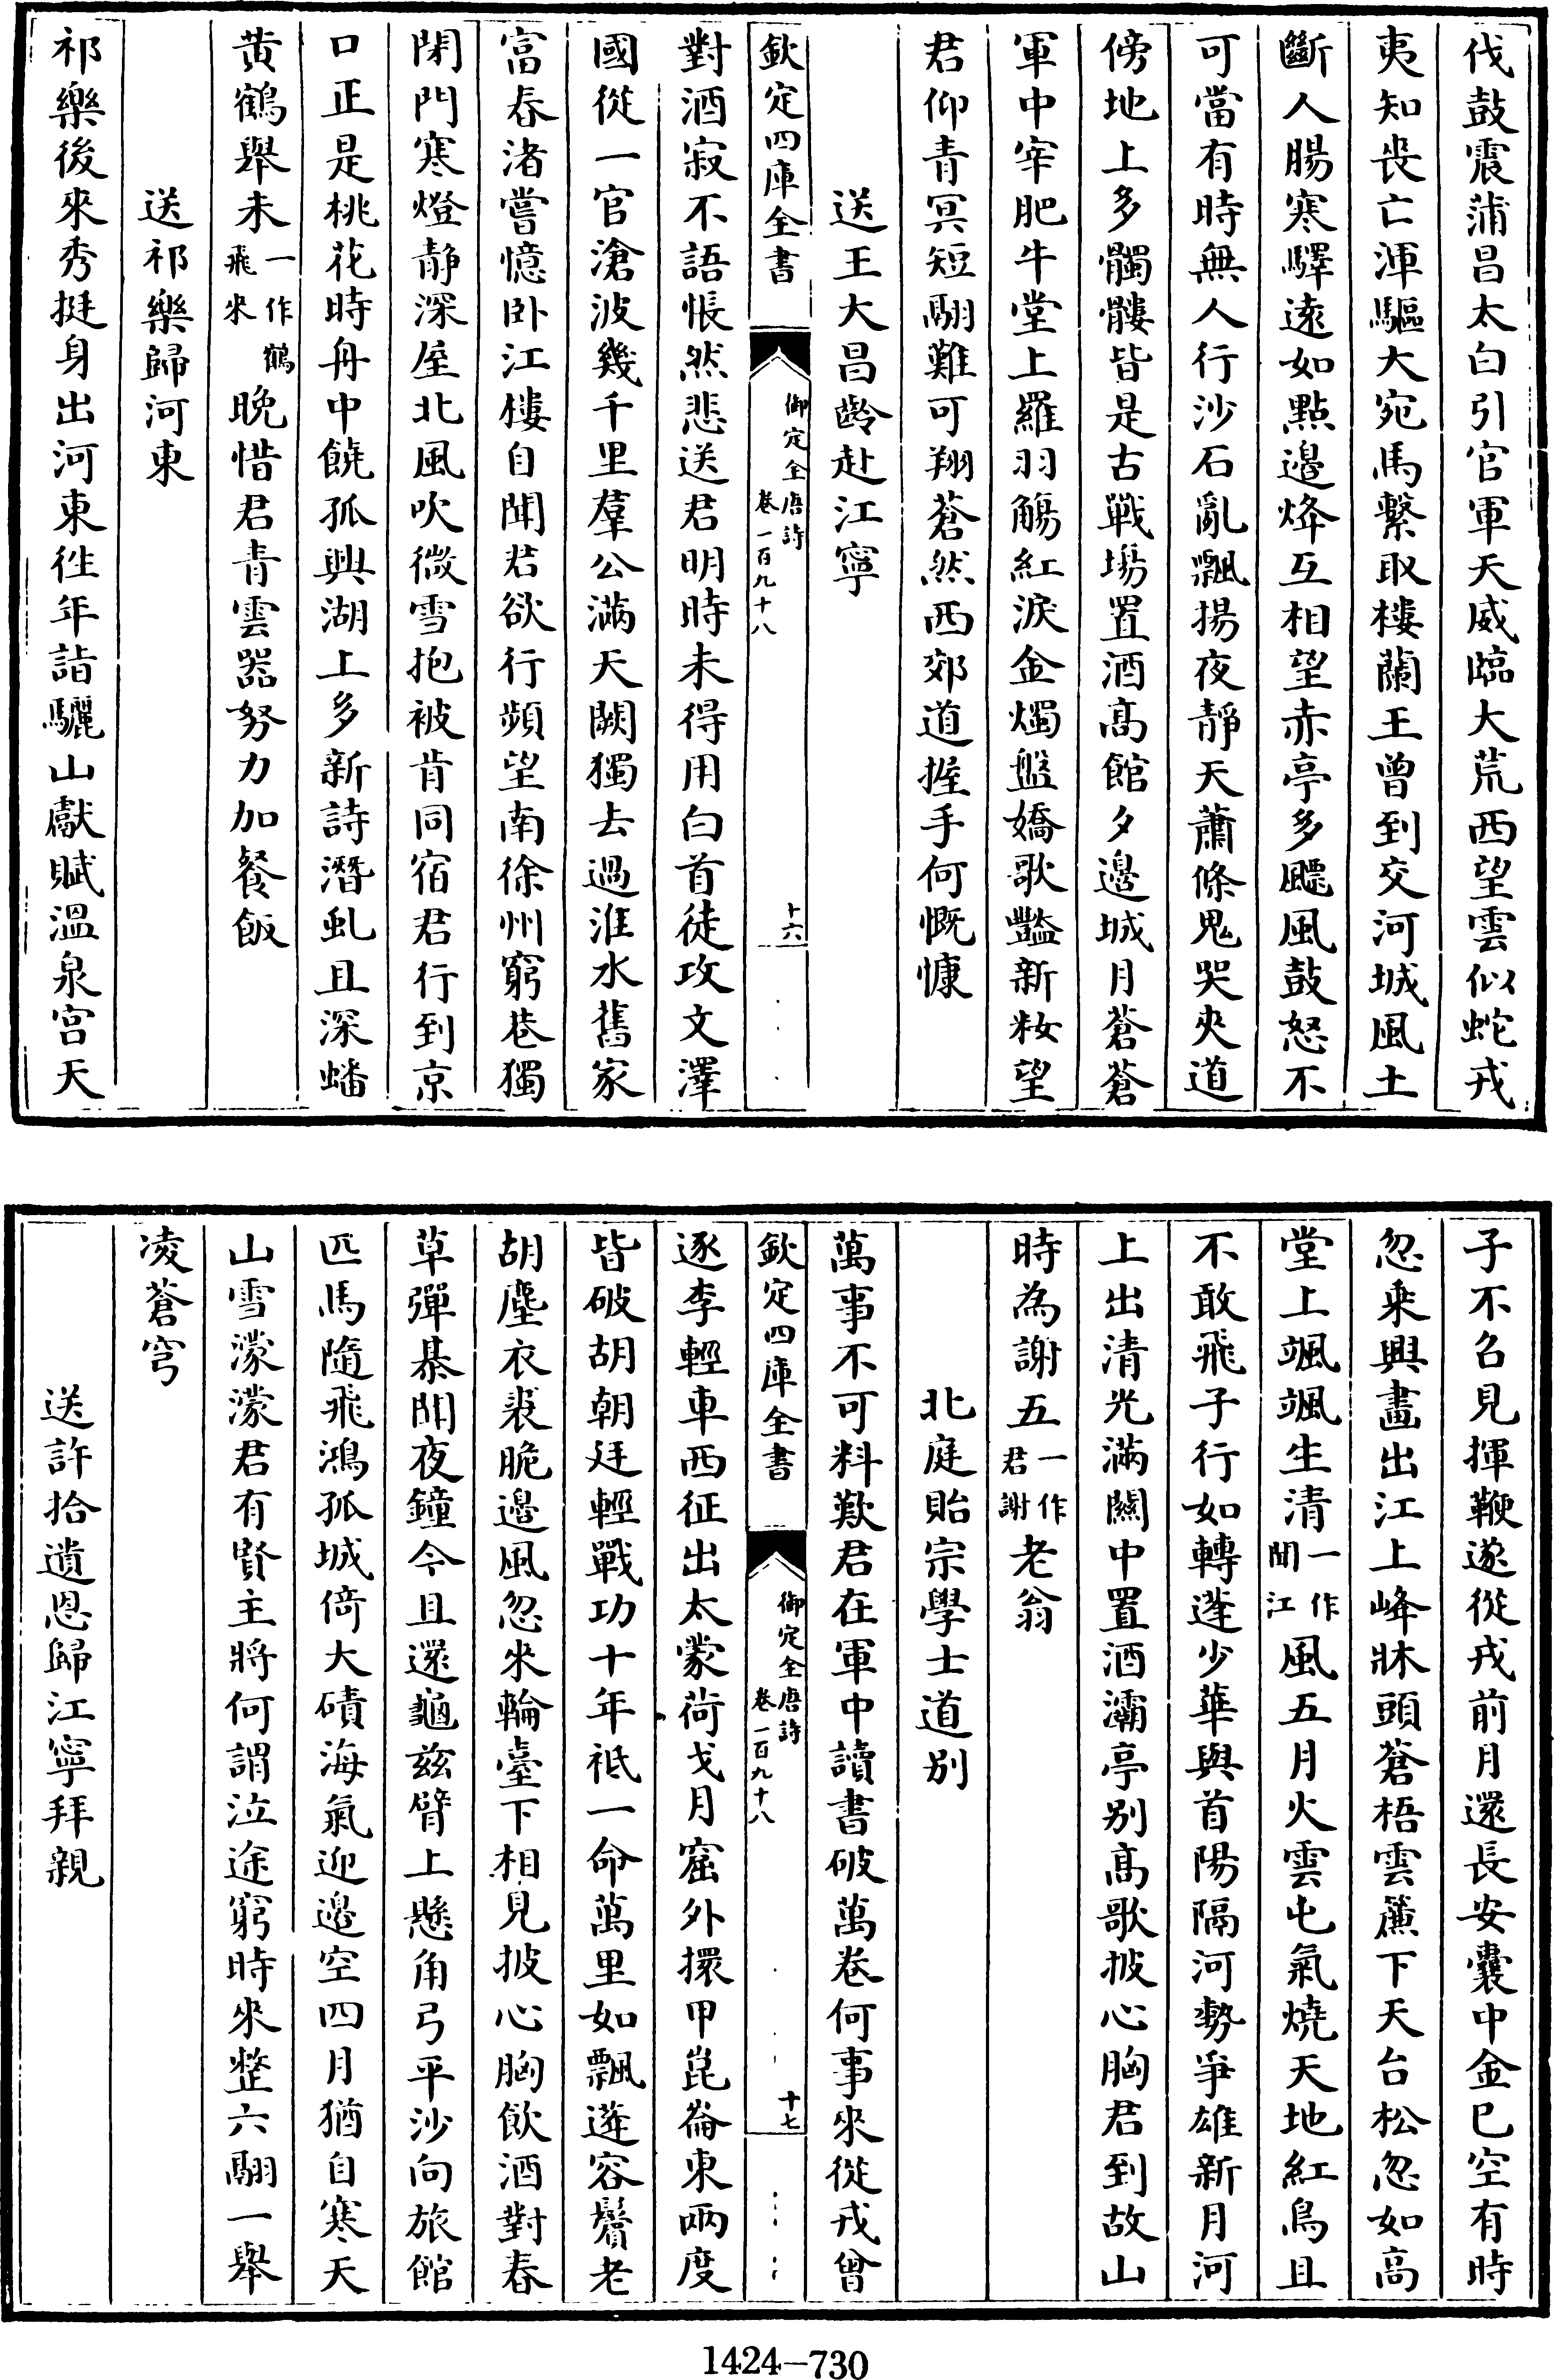 伐鼓震蒲昌太白引官軍天威臨大荒西望雲似蛇戎
夷知喪亡渾驅大宛馬繫取樓蘭王曾到交河城風土
斷人腸寒驛遠如點邊烽互相望赤亭多飃風鼓怒不
可當有時無人行沙石亂飄揚夜靜天蕭條鬼哭夾道
傍地上多髑髏皆是古戰場置酒高館夕邊城月蒼蒼
軍中宰肥牛堂上羅羽觴紅淚金燭盤嬌歌豔新粧望
君仰青冥短翮難可翔蒼然西郊道握手何慨慷
送王大昌齡赴江寧
欽定四庫全書 御定全唐詩 卷一百九十八 十六
對酒寂不語悵然悲送君明時未得用白首徒攻文澤
國從一官滄波幾千里羣公滿天闕獨去過淮水舊家
富春渚嘗憶卧江樓自聞君欲行頻望南徐州窮巷獨
閉門寒燈靜深屋北風吹微雪抱被肯同宿君行到京
口正是桃花時舟中饒孤興湖上多新詩潛虬且深蟠
黄鶴舉未一作鶴飛來晚惜君青雲器努力加餐飯
送祁樂歸河東
祁樂後來秀挺身出河東徃年詣驪山獻賦溫泉宫天
子不召見揮鞭遂從戎前月還長安囊中金已空有時
忽乘興畫出江上峰牀頭蒼梧雲簾下天台松忽如高
堂上颯颯生清一作聞江風五月火雲屯氣燒天地紅鳥且
不敢飛子行如轉蓬少華與首陽隔河勢爭雄新月河
上出清光滿關中置酒灞亭别高歌披心胸君到故山
時為謝五一作君謝老翁
北庭貽宗學士道别
萬事不可料歎君在軍中讀書破萬卷何事來從戎曾
欽定四庫全書 御定全唐詩 卷一百九十八 十七
逐李輕車西征出太蒙荷戈月窟外擐甲崑崙東兩度
皆破胡朝廷輕戰功十年祗一命萬里如飄蓬容鬢老
胡塵衣裘脆邊風忽來輪臺下相見披心胸飲酒對春
草彈棊聞夜鐘今且還龜茲臂上懸角弓平沙向旅館
匹馬隨飛鴻孤城倚大磧海氣迎邊空四月猶自寒天
山雪濛濛君有賢主將何謂泣途窮時來整六翮一舉
凌蒼穹
送許拾遺恩歸江寧拜親
1424-730